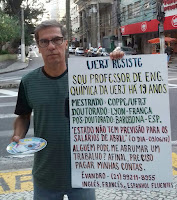 UERJ RESISTE
SOU PROFESSOR DE ENG.
QUÍMICA DA UERJ HÁ 19 ANOS
MESTRADO: COPPE/UFRJ
DOUTORADO: LYON-FRANÇA
PÓS DOUTORADO: BARCELONA-ESP.
"ESTADO NÃO TEM PREVISÃO PARA OS
SALÁRIOS DE ABRIL"
ALGUÉM PODE ME ARRUMAR UM
TRABALHO? AFINAL, PRECISO
PAGAR MINHAS CONTAS.
EVANDRO - (21)
INGLÊS, FRANCÊS, ESPANHOL FLUENTES